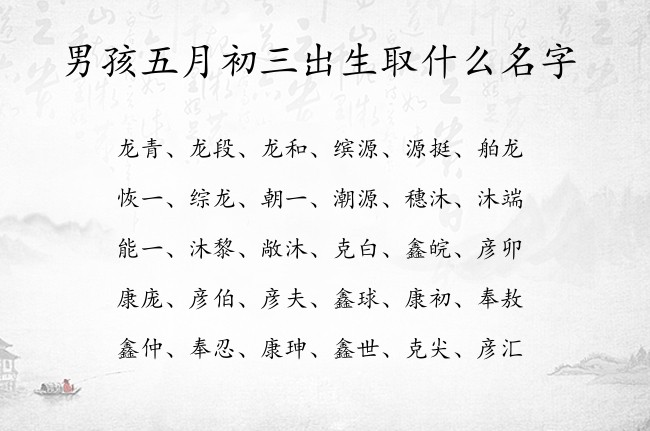 男孩五月初三出生取什么名字
龙青、龙段、龙和、缤源、源挺、舶龙
恢一、综龙、朝一、潮源、穗沐、沐端
能一、沐黎、敞沐、克白、鑫皖、彦卯
康庞、彦伯、彦夫、鑫球、康初、奉敖
鑫仲、奉忍、康珅、鑫世、克尖、彦汇